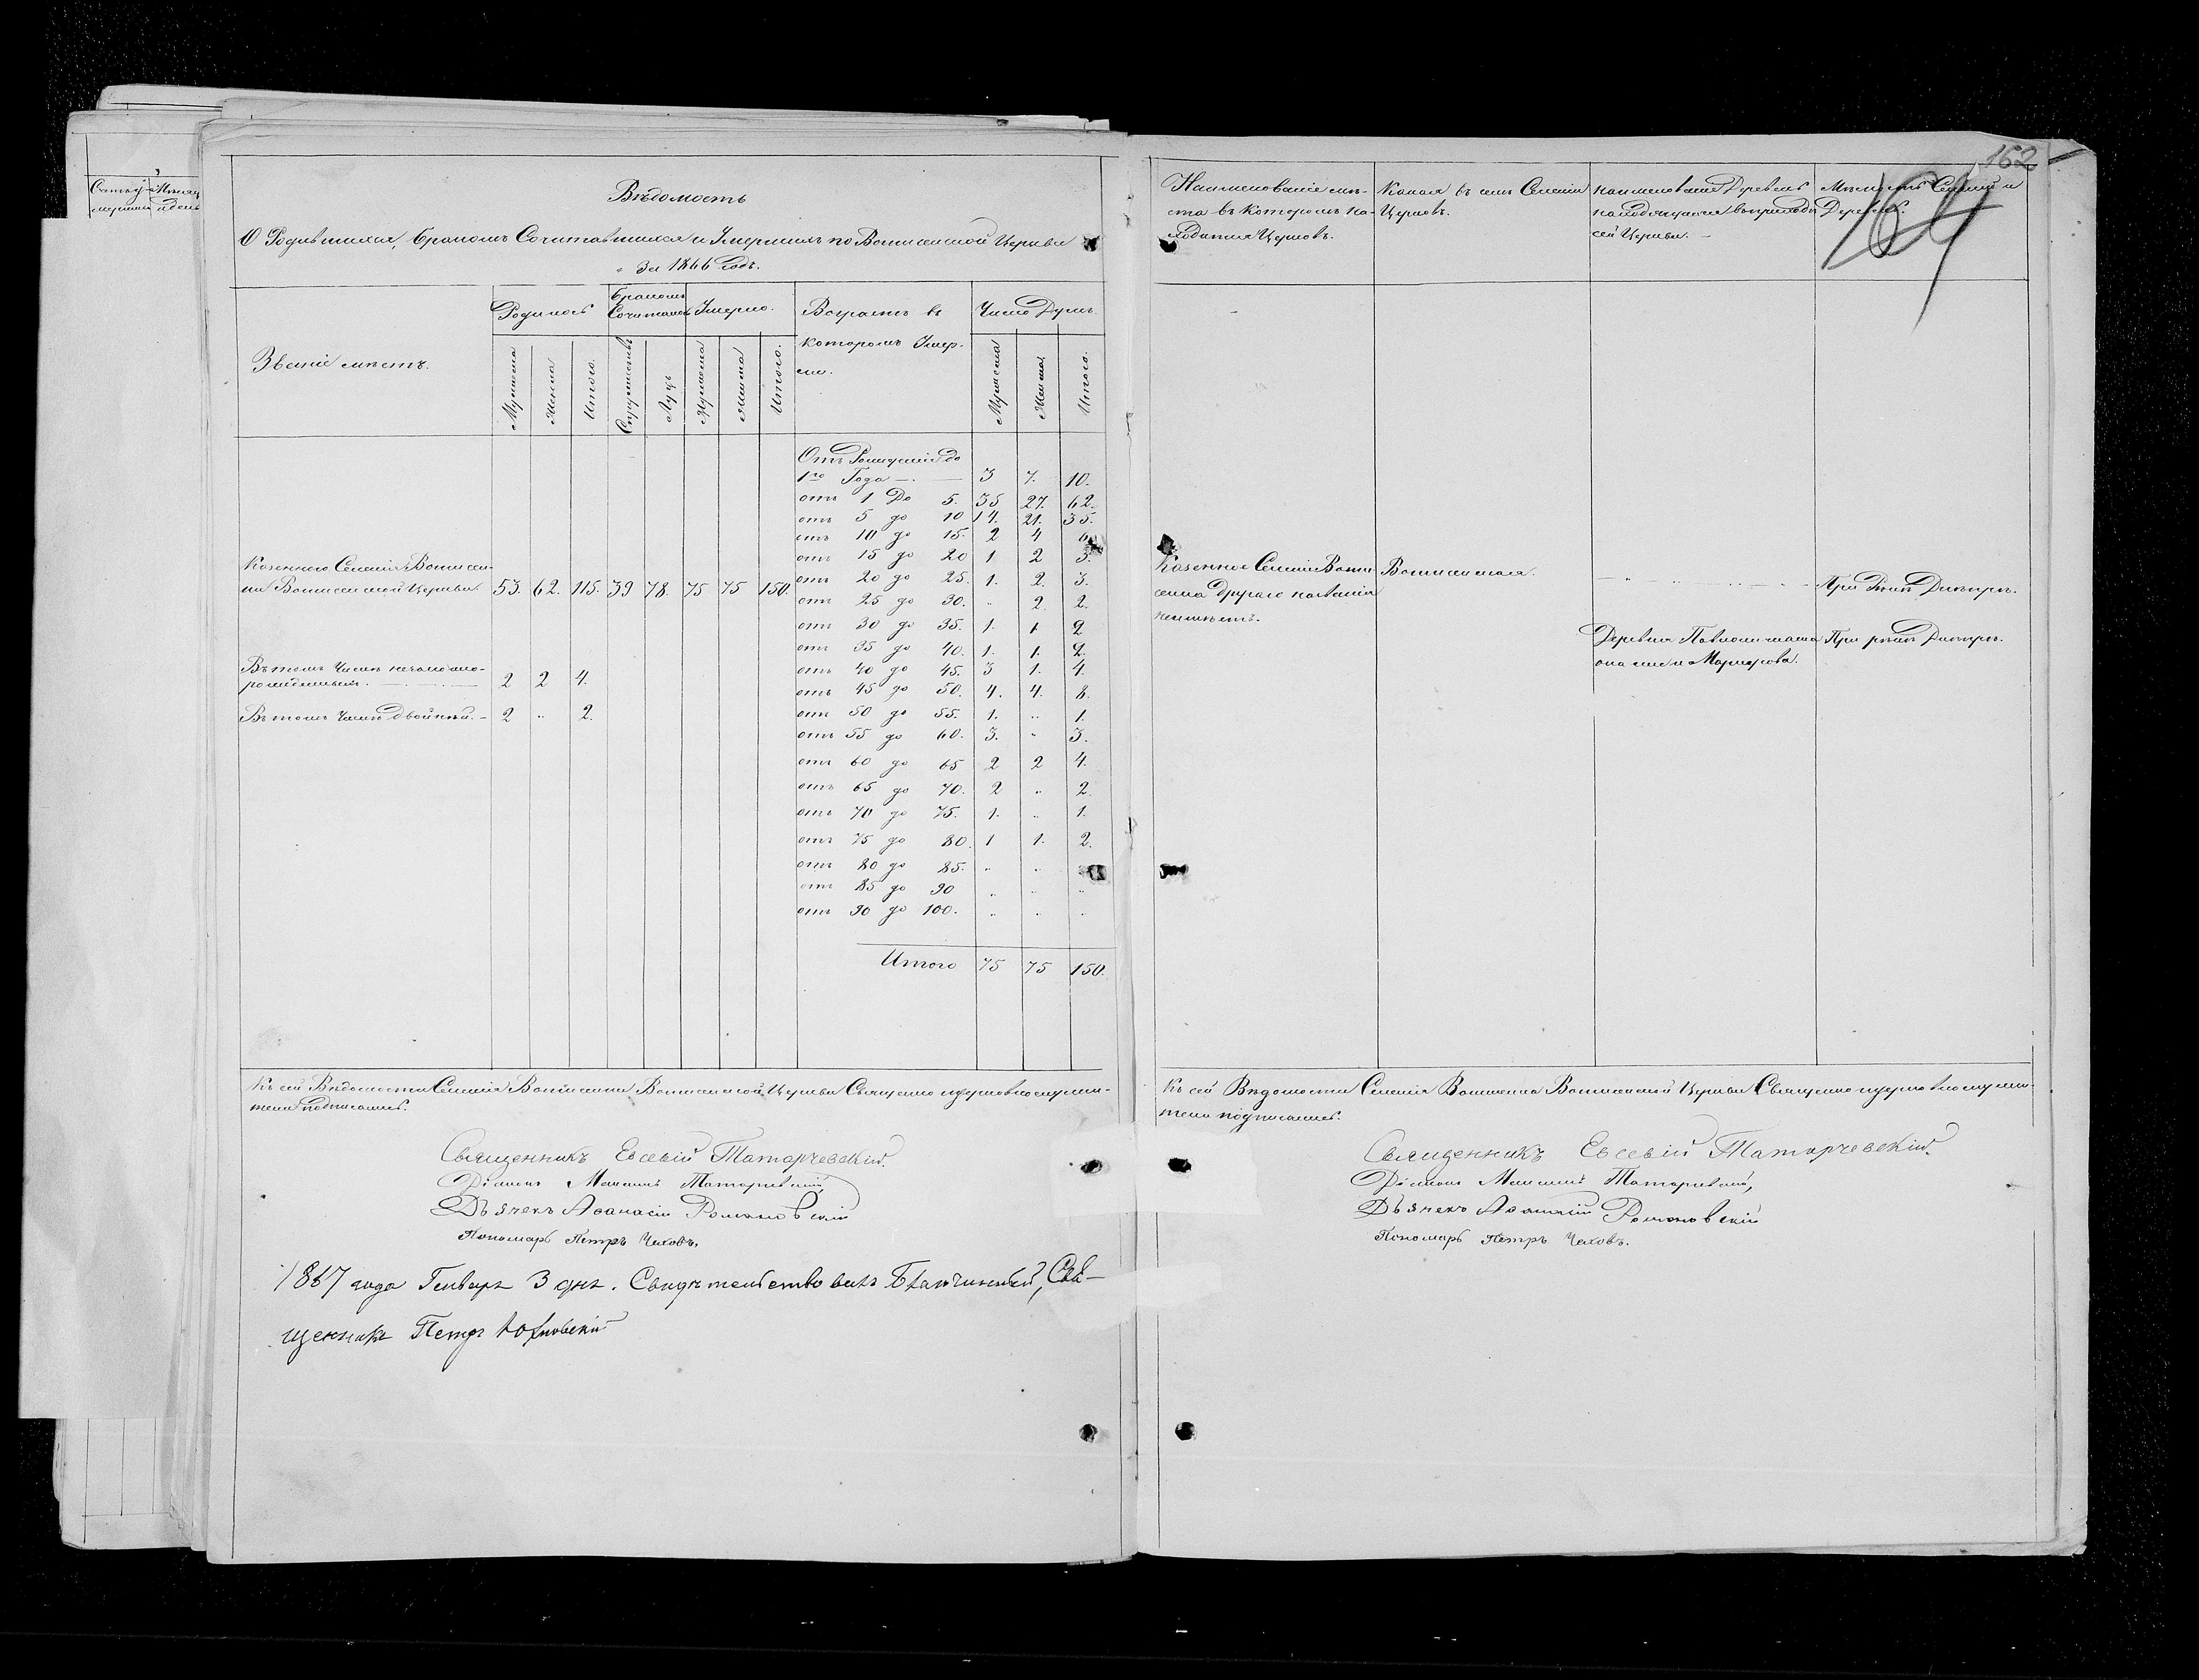 Вѣдомость
О Родившихся, бракомъ Сочитавшихся и Умершихъ по церкви
за 1866 Годъ.
Званіе мѣстъ.
Родилось
бракомъ Сочиталось
Умерло.
Возрастъ въ
которомъ Умер-
ли.
Число Душъ.
Мужеска
Женска
Итого.
Супружествъ
Лицъ
Мужеска
Женска
Итого.
Мужеска
Женска
Итого.
Отъ Рожденія до
1го Года — 3 7. 10.
отъ 1 До 5. 35 27. 62.
отъ 5 до 10 14. 21. 35.
отъ 10 до 15. 2 4 6
отъ 15 до 20 1 2 3.
Казеннаго Селенія
Церкви 53. 62. 115. 39 78. 75 75 150.
отъ 20 до 25. 1. 2. 3.
отъ 25 до 30. „ 2 2.
отъ 30 до 35. 1. 1. 2
отъ 35 до 40. 1. 1. 2.
Въ томъ Числѣ незаконно-
рожденныхъ. — 2 2 4.
отъ 40 до 45. 3 1. 4.
отъ 45 до 50. 4. 4. 8.
Въ томъ Числѣ двойней. – 2 „ 2.
отъ 50 до 55. 1. „ 1.
отъ 55 до 60. 3. „ 3.
отъ 60 до 65 2 2 4.
отъ 65 до 70. 2 „ 2.
отъ 70 до 75. 1. „ 1.
отъ 75 до 80. 1 1. 2.
отъ 80 до 85. „ „
отъ 85 до 90 „ „ „
отъ 90 до 100. „ „ „
Итого 75 75 150.
Къ сей Вѣдомости Селенія Церкви Священно церковнослужи-
тели подписались.
Священникъ Евсевій Татарчевскій.
Діаконъ
Дьячекъ Аѳанасій Романовскій
Пономарь Петръ Чаховъ.
1867 года Генваря 3 дня. Свидѣтельствовалъ Благочинный, Свя-
щенникъ Петръ
162
Наименованіе мѣ-
ста въ которомъ на-
ходится Церковь.
Какая въ семъ Селеніи
Церковь.
наименованіе Деревень
находящихся въ приходѣ
сей Церкви. –
Мѣстность Селеній и
Деревень.
Казенное Селеніе
другаго названія
неимѣетъ.
При рѣкѣ Днѣпрѣ.
Деревня
она же и Маркусова.
При рѣкѣ Днѣпрѣ.
Къ сей Вѣдомости Селенія Церкви Священно церковнослужи-
тели подписались.
Священникъ Евсевій Татарчевскій.
Діаконъ
Дьячекъ Аѳанасій Романовскій
Пономарь Петръ Чаховъ.